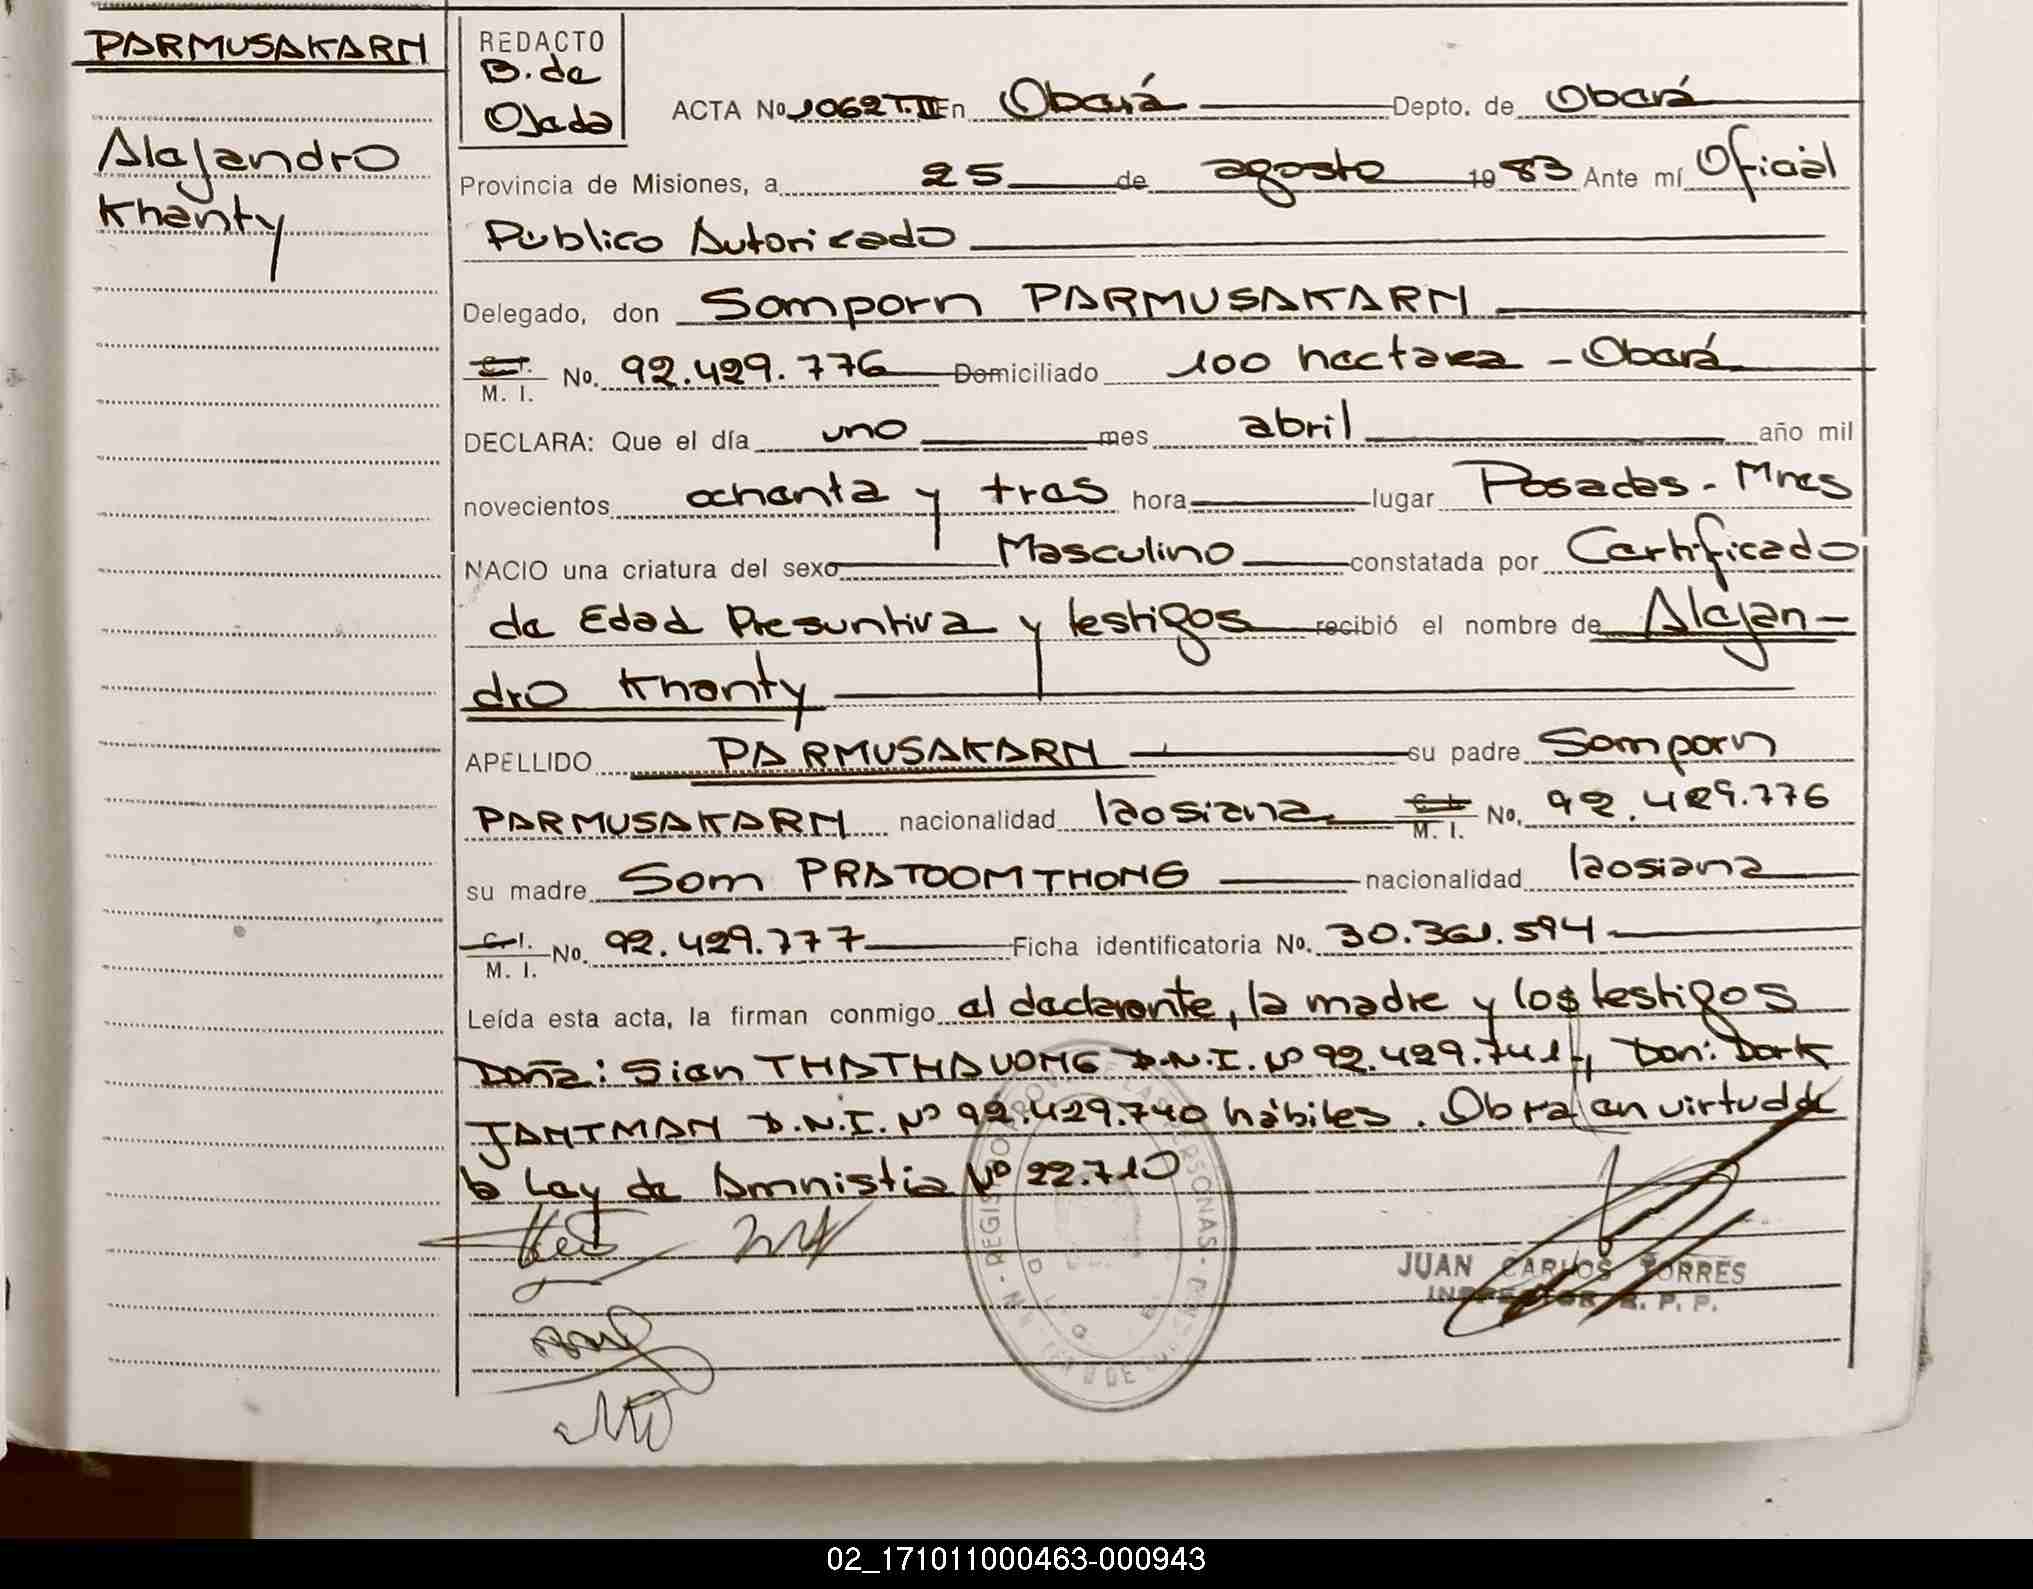 PARMUSAKARN
Alejandro
Khanty
REDACTO
B. de
Ojeda
ACTA No. 1062 T. II En Oberá Depto. de Oberá
Provincia de Misiones, a 25 de agosto 1983 Ante mí Oficial
Público Autorizado
Delegado, don Somporn PARMUSAKARN
C. I. M. I. No. 92.429.776 Domiciliado 100 hectarea - Oberá
DECLARA: Que el día uno mes abril año mil
novecientos ochenta y tres hora lugar Posadas - Mnes
NACIO una criatura del sexo Masculino constatada por Certificado
de Edad Presuntiva y testigos recibió el nombre de Alejan-
dro Khanty
APELLIDO PARMUSAKARN su padre Somporn
PARMUSAKARN nacionalidad laosiana C. I. M. I. No. 92.429.776
su madre Som PRATOOMTHONG nacionalidad laosiana
C. I. M. I. No. 92.429.777 Ficha identificatoria No. 30.361.594
Leída esta acta, la firman conmigo el declarante, la madre y los testigos
Doña: Sien THATHAVONG D.N.I. Nº 92.429.741, Don: Dork
JANTMAN D.N.I. Nº 92.429.740 hábiles. Obra en virtud de
la Ley de Amnistia Nº 22.710
REGISTRO PERSONAS
JUAN CARLOS TORRES
INSPECTOR R. P. P.
02_171011000463-000943